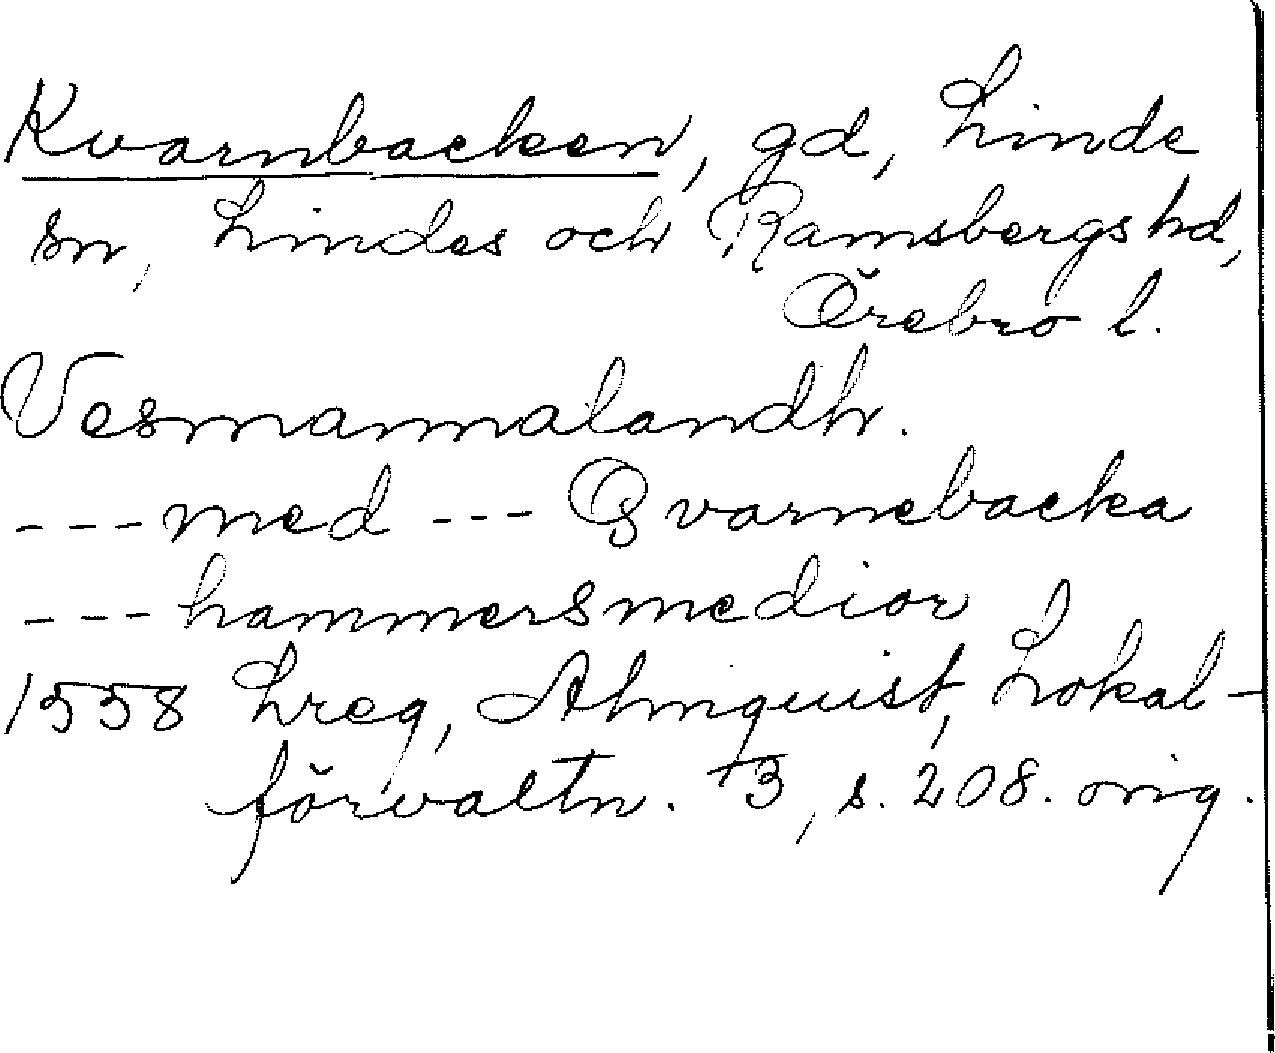 Kvarnbacken, gd, Linde
sn, Lindes och Ramsbergs hd,
Örebro l.
Vesmannalandh.
--- med --- Qvarnebacka
--- hammersmedior
1558 Lreg, Almquist, Lokal-
förvaltn. 3, s. 208. orig.